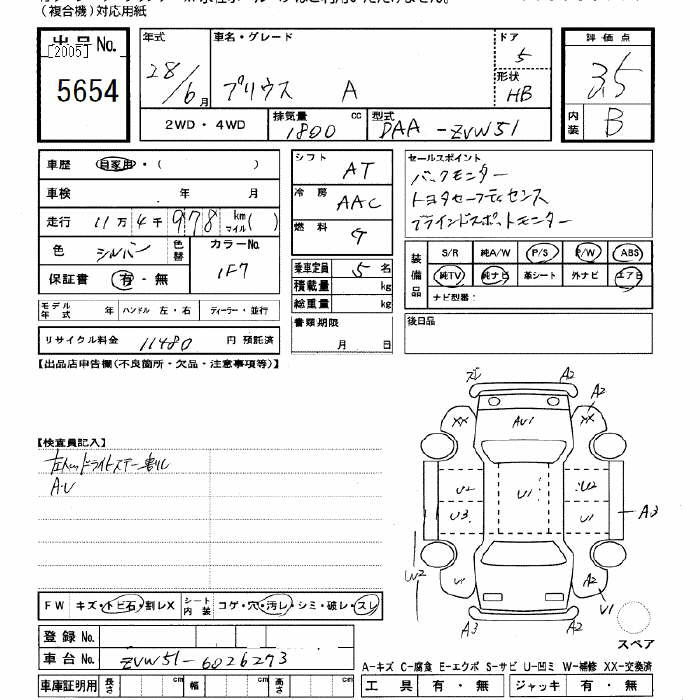 （複合機）対応用紙
出品No.
[2005]
5654
年式
28/6月
車名・グレード
プリウス A
ドア
5
形状
HB
2WD・4WD
排気量
1800 cc
型式
DAA-ZVW51
評価点
3.5
内装
B
車歴 自家用・（ ）
車検 年 月
走行 11万4千978 km マイル（ ）
色 シルバー 色替 カラーNo. 1F7
保証書 有・無
モデル年式 年 ハンドル 左・右 ディーラー・並行
リサイクル料金 11480 円 預託済
シフト AT
冷房 AAC
燃料 G
乗車定員 5 名
積載量 kg
総重量 kg
書類期限
月 日
セールスポイント
バックモニター
トヨタセーフティセンス
ブラインドスポットモニター
装備品
S/R 純A/W P/S P/W ABS
純TV 純ナビ 革シート 外ナビ エアB
ナビ型番：
後日品
【出品店申告欄（不良箇所・欠品・注意事項等）】
【検査員記入】
A・U
A2
A2
XX
AU1
XX
U2
U1
U2
U3
U1
A3
W2
A2
U1
A3
A2
スペア
FW キズ・トビ石・割レX シート内装 コゲ・穴・汚レ・シミ・破レ・スレ
登録No.
車台No. ZVW51-6026273
車庫証明用 長さ cm 幅 cm 高さ cm
A-キズ C-腐食 E-エクボ S-サビ U-凹ミ W-補修 XX-交換済
工具 有・無 ジャッキ 有・無